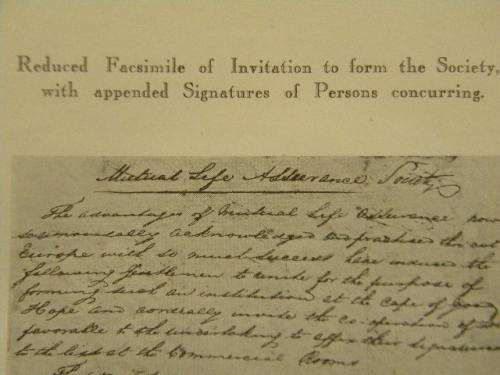 Reduced Facsimile of Invitation to form the Society,
with appended Signatures of Persons concurring.
Mutual Life Assurance Society
The advantages of Mutual Life Assurance now
so universally acknowledged practised
Europe with so much success have induced the
following Gentlemen to unite for the purpose of
forming such an institution at the Cape of Good
Hope and cordially invite the co-operation of
favorable to the undertaking to affix their signatures
to the list at the Commercial Rooms